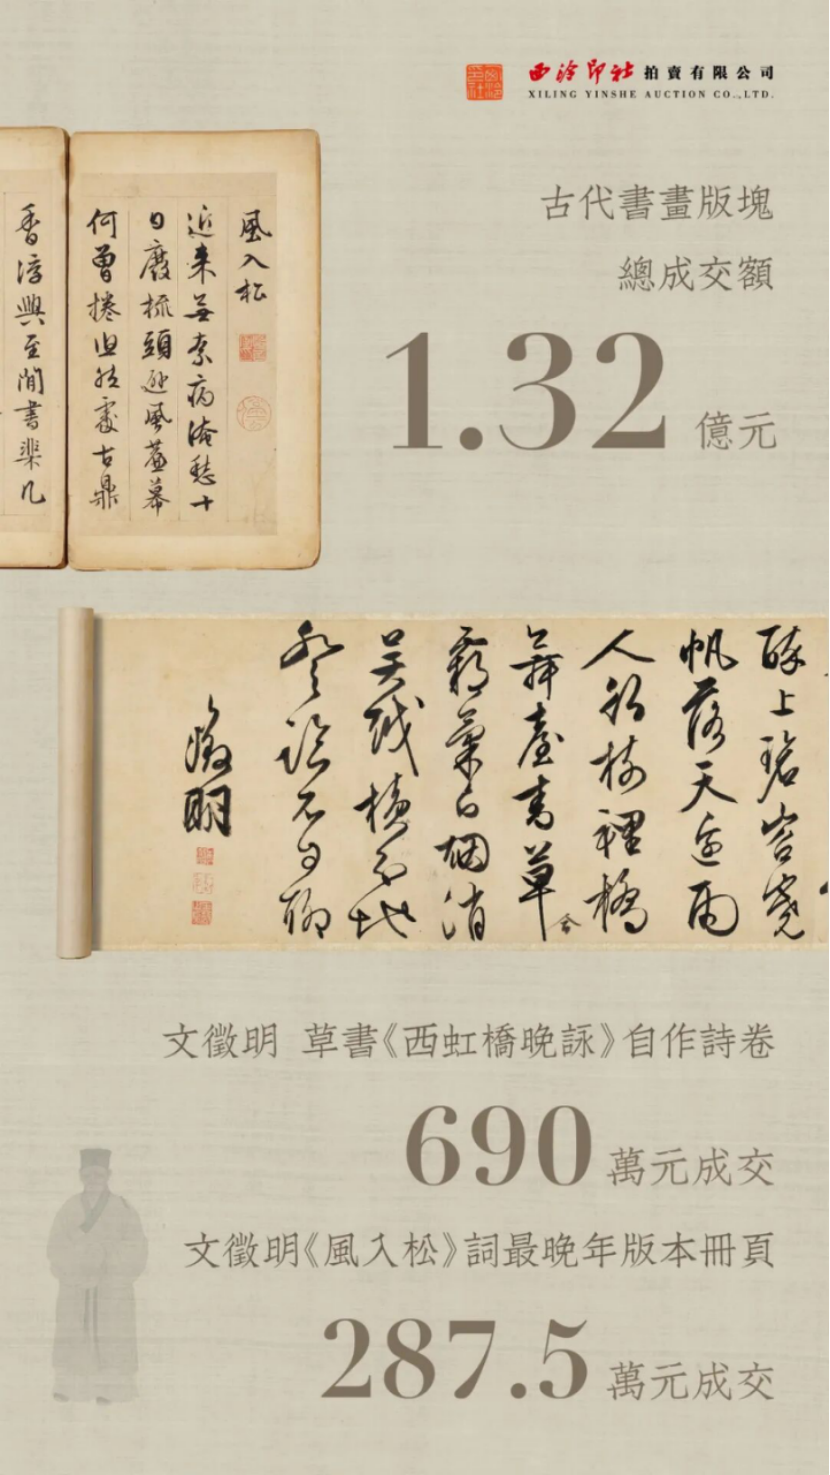 西泠印社拍賣有限公司
XILING YINSHE AUCTION CO.,LTD.
古代書畫版塊
總成交額
1.32 億元
風入松
近來無奈病淹愁十
日廢梳頭避風簾幕
何曾捲但焚香古鼎
香浮興至閒書棐几
醉上碧峇嶤
帆落天邊雨
人行樹裡橋
舞臺春草合
霸業白烟消
吳越橫分地
登臨不自聊
徵明
文徵明 草書《西虹橋晚詠》自作詩卷
690 萬元成交
文徵明《風入松》詞最晚年版本冊頁
287.5 萬元成交